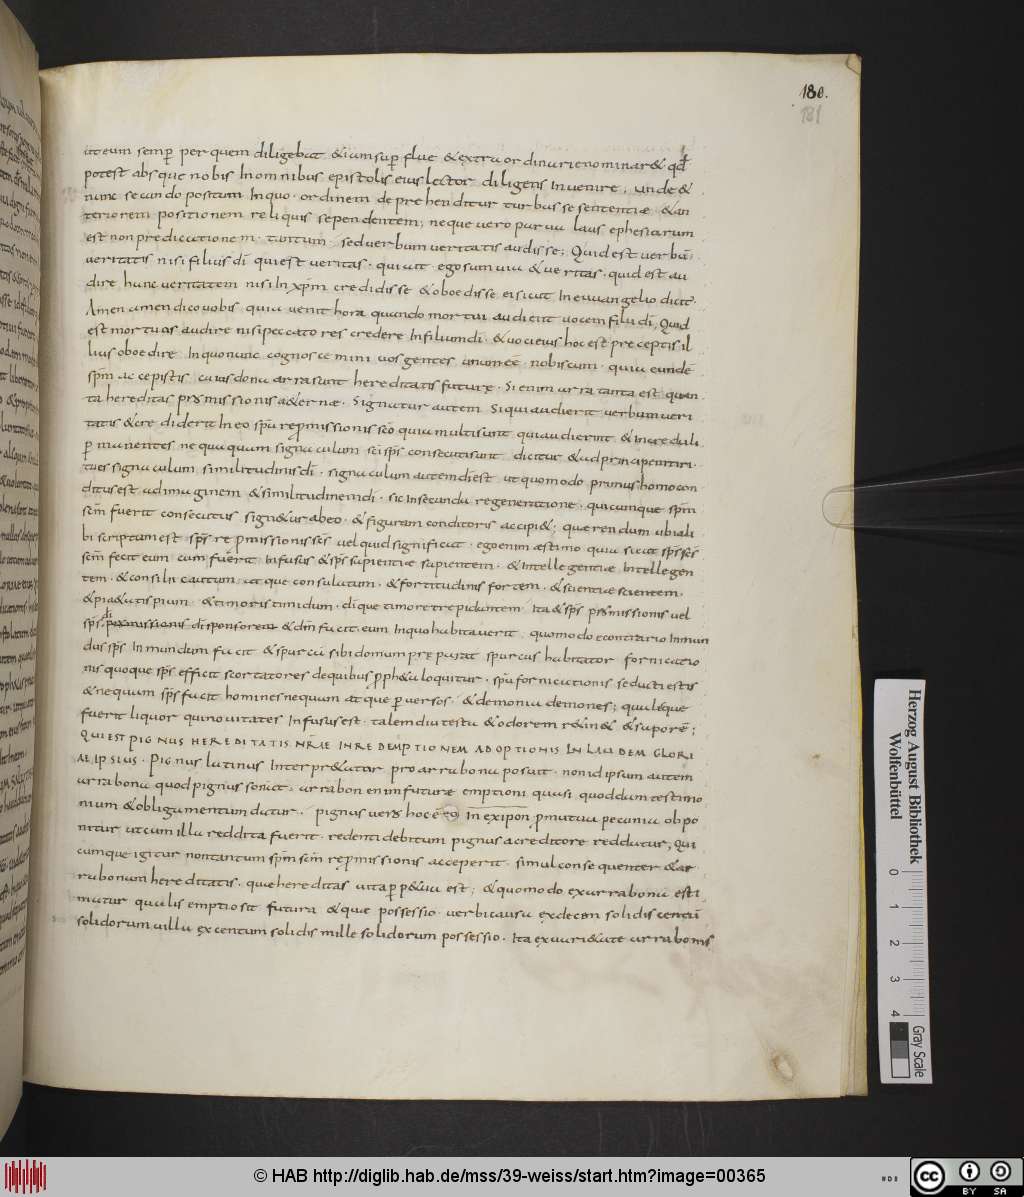 180.
181
item semp̄ per quem diligebat &iam sup̄flue &extra ordinarie nominar& qd̄
potest absque nobis In omnibus epistolis eius lector diligens Inuenire, unde &
nunc secundo positum In quo · ordinem deprehenditur turbasse sententiæ · &an
teriorem positionem reliquis sependentem; neque uero parua laus ephesiorum
est non predicatione m · tantum · sed uerbum ueritatis audisse; Quid est uerbū
ueritatis nisi filius dī qui est ueritas · qui ait ego sum uia &ueritas · quid est au
dire hanc ueritatem nisi In xp̄m credidisse &oboedisse ei sicut In euuangelio dicit·
Amen amen dico uobis quia uenit hora quando mortui audient uocem filii dī, Quid
est mortuos audire nisi peccatores credere In filium dī · &uoci eius hoc est preceptis il
lius oboedire In quo nunc cognoscemini uos gentes unum eē · nobiscum · quia eundē
sp̄m accepistis cuius dona arra sunt hereditatis future · Si enim arra tanta est quan
ta hereditas p̄missionis a&ernæ · Signatur autem Si qui audierit uerbum ueri
tatis &crediderit In eo sp̄u rep̄missionis sc̄o quia multi sunt qui audierint &increduli
p̄manentes nequaquam signaculum sc̄i sp̄s consecuti sunt dicitur &ad principem tiri ·
tu es signaculum similitudinis dī · signaculum autem dī est ut quomodo primus homo con
ditus est ad imaginem &similitudinem dī · sic In secunda regeneratione · quicumque sp̄m
sc̄m fuerit consecutus sign&ur ab eo · &figuram conditoris accipi&; querendum ubi ali
bi scriptum est sp̄s rep̄missionis ses uel quid significat · ego enim æstimo quia sicut sp̄s ses
sc̄m fecit eum cum fuerit Infusus &sp̄s sapientiæ sapientem · &Intellegentiæ Intellegen
tem · &consilii cautum, atque consulatum · &fortitudinis fortem · &scientiæ scientem ·
&pi&atis pium · &timoris timidum · dī que timore trepidantem Ita &sp̄s p̄missionis uel
sp̄s p̄missionis dī sponsorem &dm̄ facit · eum In quo habitauerit quomodo econtrario Inmun
dus sp̄s In mundum facit &spurcū sibi domum preparat spurcus habitator fornicatio
nis quoque sp̄s efficit scortatores de quibus p̄ph&a loquitur · sp̄u fornicationis seducti estis
&nequam sp̄s facit homines nequam atque p̄uersos · &demonia demones; quale que
fuerit liquor qui nouitates Infusus est · talem diu testu &odorem r&in& &saporē;
QUI EST PIGNUS HEREDITATIS NR̄AE IN REDEMPTIONEM ADOPTIONIS IN LAUDEM GLORI
AE IPSIUS · Pignus latinus Interpr&atur pro arrabona posuit · non id ipsum autem
arrabona quod pignus sonat · arrabon enim future emptioni quasi quoddam testimo
nium &obligamentum datur. pignus uero hoc ē In exipon p̄mutua pecunia obpo
nitur ut cum illa reddita fuerit · redenti debitum pignus a creditore reddatur, Qui
cumque igitur non tantum sp̄m sc̄m rep̄missionis acceperit · simul consequenter &ar
rabonam hereditatis · que hereditas uita p̄p&ua est; &quomodo ex arrabona esti
matur qualis emptio sit futura &que possessio uerbi causa ex decem solidis centū
solidorum uilla ex centum solidis mille solidorum possessio · Ita ex uari&ate arrabonis
Herzog August Bibliothek
Wolfenbüttel
0 1 2 3 4
Gray Scale
© HAB http://diglib.hab.de/mss/39-weiss/start.htm?image=00365
CC BY SA